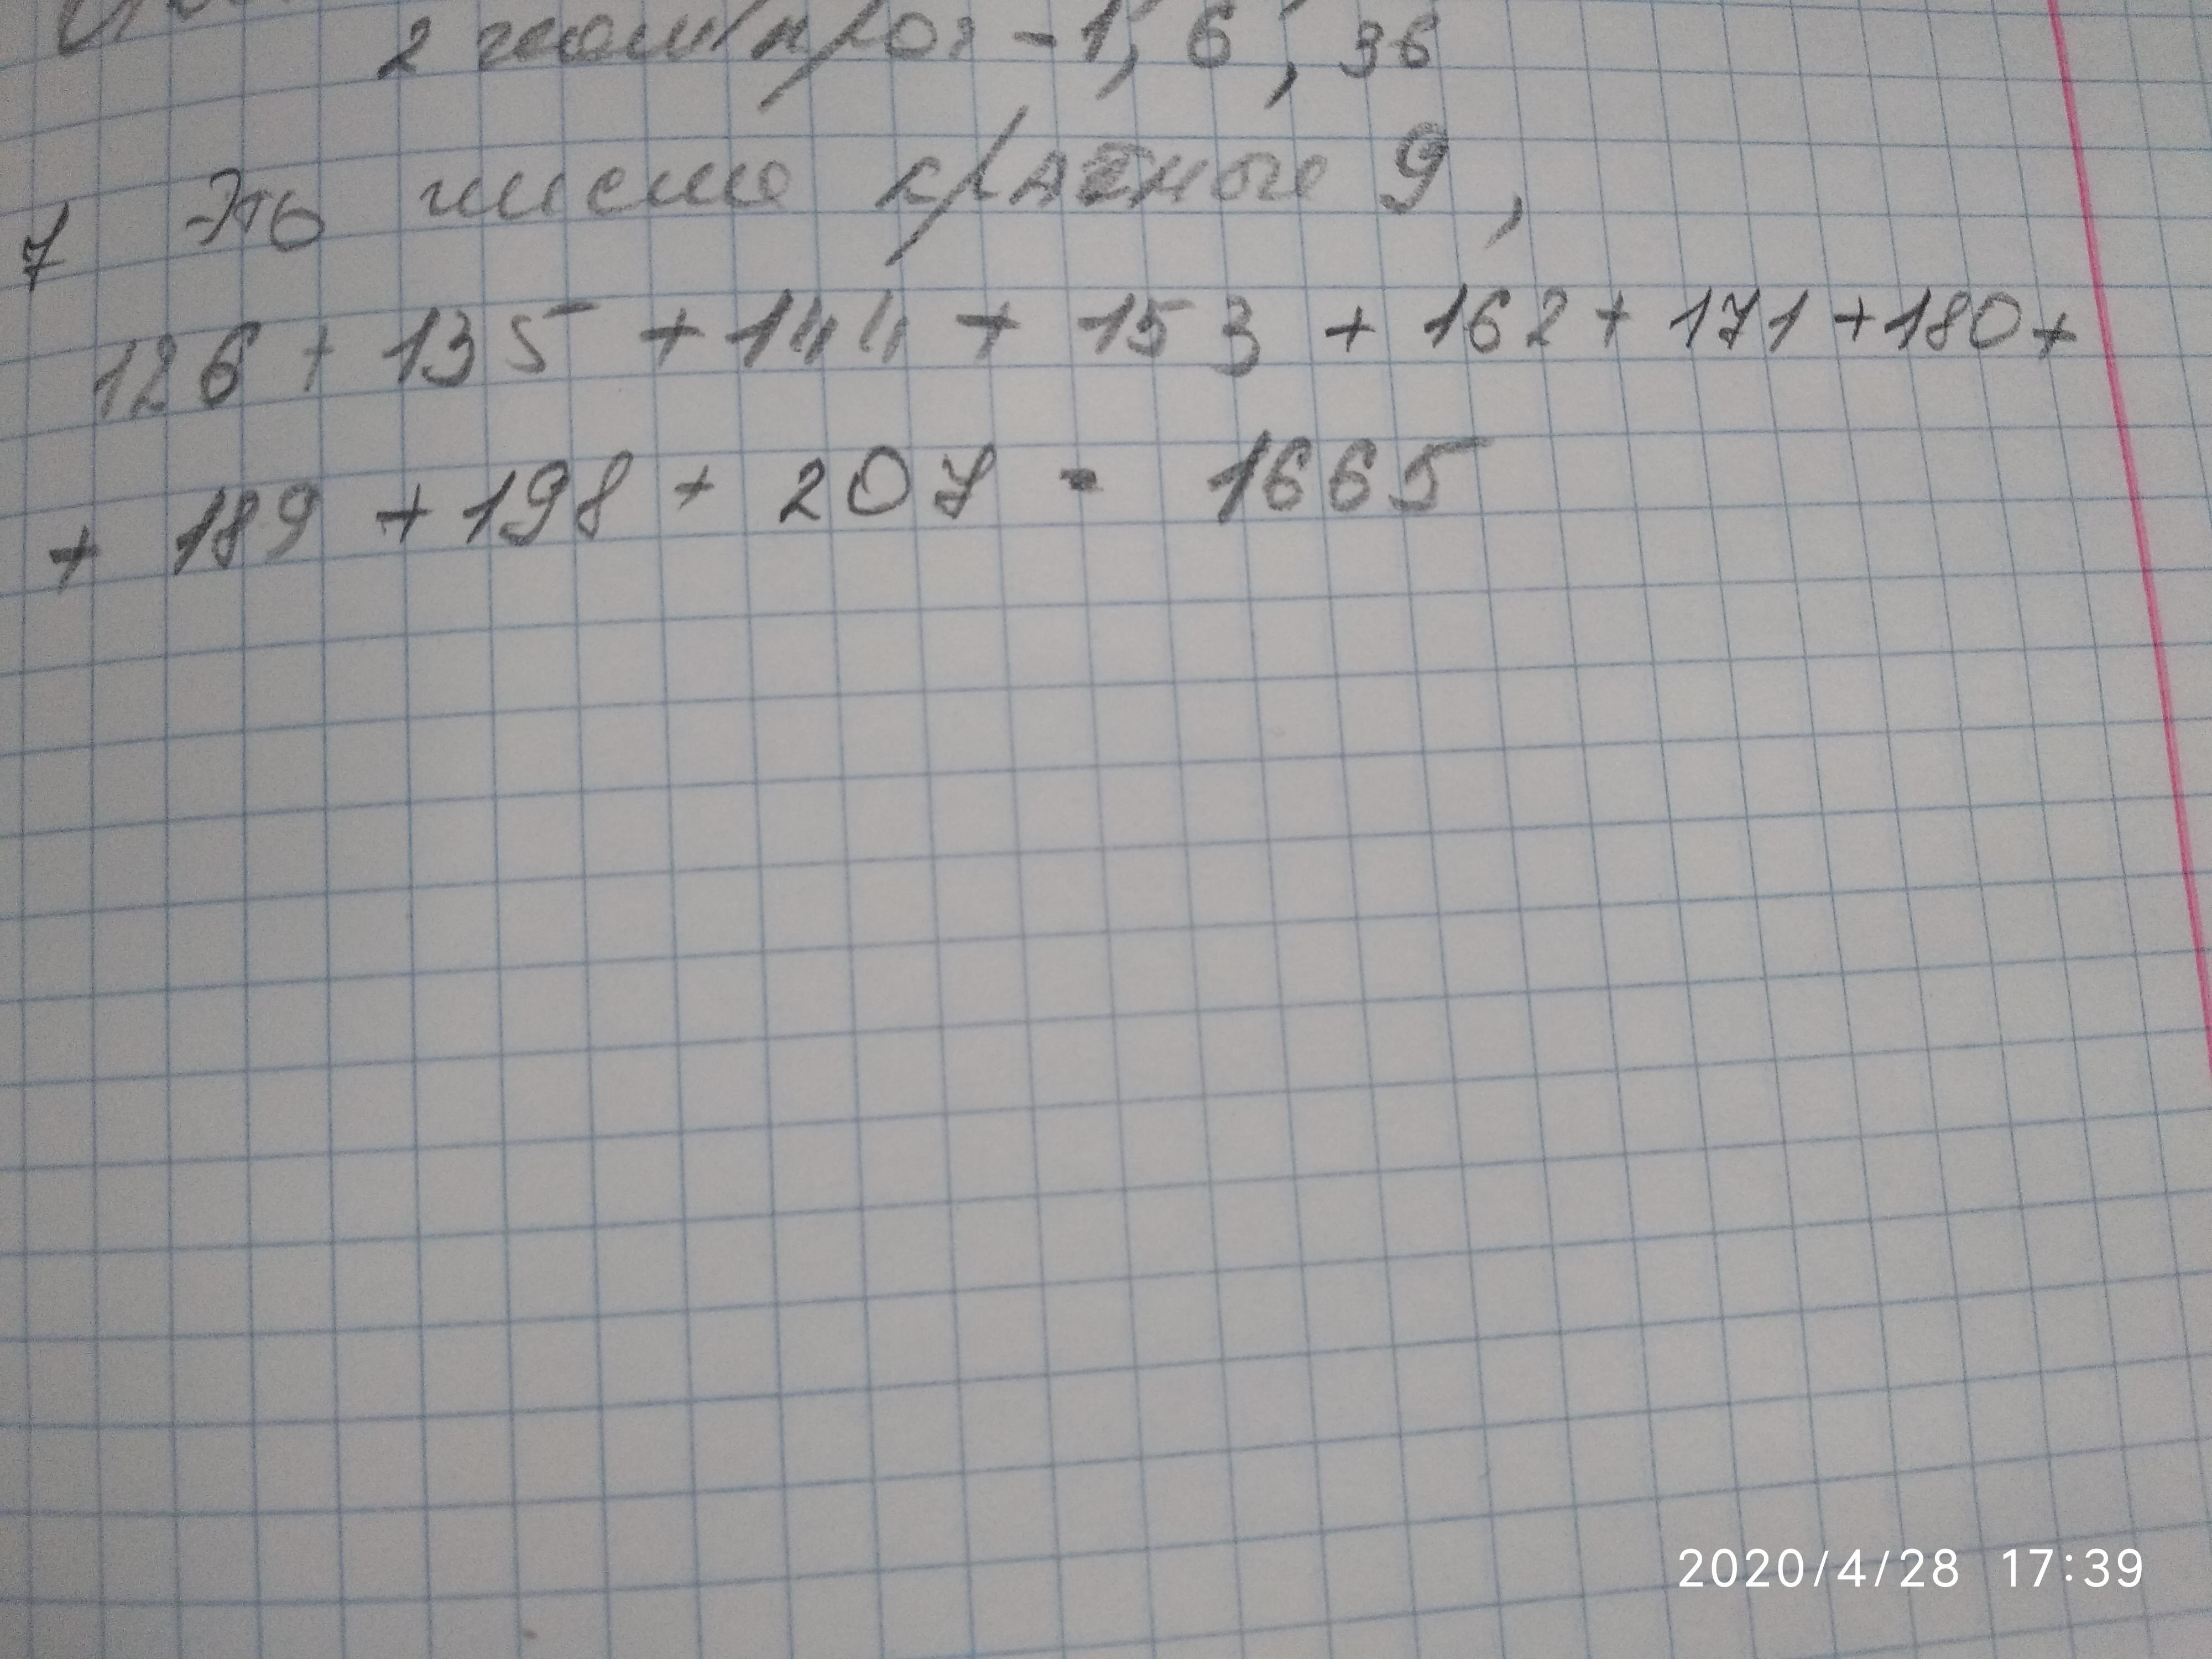 2 геом/прог - 1, 6, 36
7 Это числа кратные 9,
126 + 135 + 144 + 153 + 162 + 171 + 180 +
+ 189 + 198 + 207 = 1665
2020/4/28 17:39